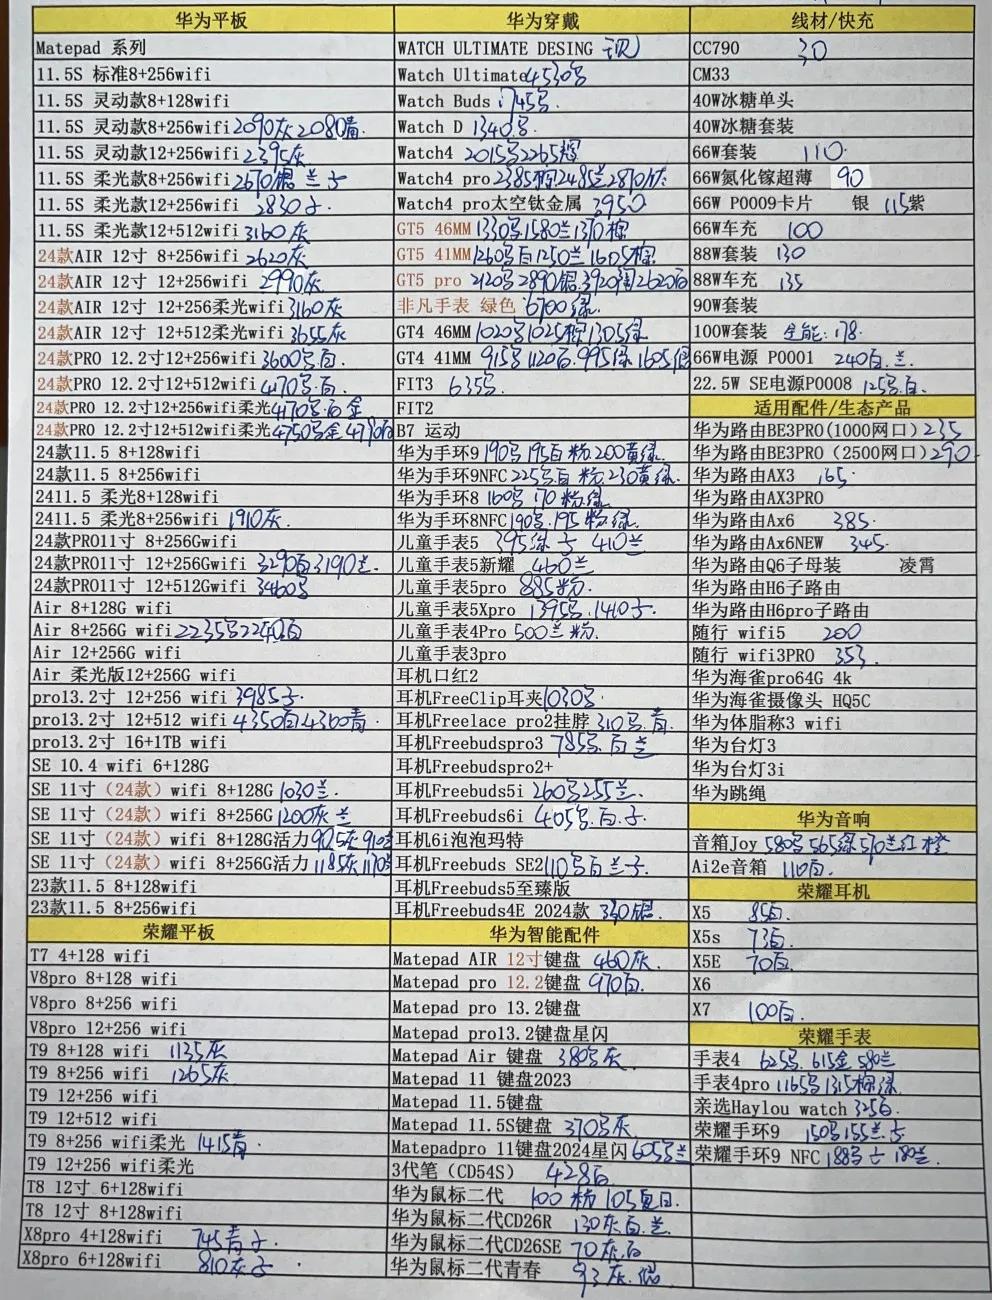 华为平板
Matepad 系列
11.5S 标准8+256wifi
11.5S 灵动款8+128wifi
11.5S 灵动款8+256wifi 2090灰 2080青
11.5S 灵动款12+256wifi 2395灰
11.5S 柔光款8+256wifi 2670银 兰 子
11.5S 柔光款12+256wifi 2830子
11.5S 柔光款12+512wifi 3160灰
24款AIR 12寸 8+256wifi 2620灰
24款AIR 12寸 12+256wifi 2990灰
24款AIR 12寸 12+256柔光wifi 3160灰
24款AIR 12寸 12+512柔光wifi 3655灰
24款PRO 12.2寸12+256wifi 3600号白
24款PRO 12.2寸12+512wifi 4170号.白
24款PRO 12.2寸12+256wifi柔光 4170号.白 金
24款PRO 12.2寸12+512wifi柔光 4750号金
24款11.5 8+128wifi
24款11.5 8+256wifi
2411.5 柔光8+128wifi
2411.5 柔光8+256wifi 1910灰.
24款PRO11寸 8+256Gwifi
24款PRO11寸 12+256Gwifi 3290白 3190兰.
24款PRO11寸 12+512Gwifi 3460号
Air 8+128G wifi
Air 8+256G wifi 2235号 2240白
Air 12+256G wifi
Air 柔光版12+256G wifi
pro13.2寸 12+256 wifi 3985子
pro13.2寸 12+512 wifi 4350白 4360青
pro13.2寸 16+1TB wifi
SE 10.4 wifi 6+128G
SE 11寸（24款）wifi 8+128G 1030兰
SE 11寸（24款）wifi 8+256G 1200灰 兰
SE 11寸（24款）wifi 8+128G活力 905灰
SE 11寸（24款）wifi 8+256G活力 1185灰
23款11.5 8+128wifi
23款11.5 8+256wifi
荣耀平板
T7 4+128 wifi
V8pro 8+128 wifi
V8pro 8+256 wifi
V8pro 12+256 wifi
T9 8+128 wifi 1135灰
T9 8+256 wifi 1265灰
T9 12+256 wifi
T9 12+512 wifi
T9 8+256 wifi柔光 1415青
T9 12+256 wifi柔光
T8 12寸 6+128wifi
T8 12寸 8+128wifi
X8pro 4+128wifi 745青 子.
X8pro 6+128wifi 810灰 子
华为穿戴
WATCH ULTIMATE DESING
Watch Ultimate 4530号
Watch Buds 1745号.
Watch D 1340号.
Watch4 2015号 2265棕
Watch4 pro 2385棕 2485兰 2870灰
Watch4 pro太空钛金属 3950
GT5 46MM 1330号 1580兰 1370棕
GT5 41MM 1260号白 1250兰 1605棕
GT5 pro 2120号 2890银 3920陶 2620白
非凡手表 绿色 6700绿.
GT4 46MM 1020号 1025棕 1305绿
GT4 41MM 915号 1120白 995绿
FIT3 635号
FIT2
B7 运动
华为手环9 190号 195白 粉 200黄绿
华为手环9NFC 225号白 粉 230黄绿.
华为手环8 160号 170 粉.绿
华为手环8NFC 190号.195 粉 绿
儿童手表5 395绿 子 410兰
儿童手表5新耀 460兰
儿童手表5pro 885粉
儿童手表5Xpro 1395号.1410子.
儿童手表4Pro 500兰 粉.
儿童手表3pro
耳机口红2
耳机FreeClip耳夹 1030号
耳机Freelace pro2挂脖 310号.青
耳机Freebudspro3 785号.白 兰
耳机Freebudspro2+
耳机Freebuds5i 260号 255兰.
耳机Freebuds6i 405号.白.子
耳机6i泡泡玛特
耳机Freebuds SE2 110号白 兰 子.
耳机Freebuds5至臻版
耳机Freebuds4E 2024款 330银.
华为智能配件
Matepad AIR 12寸键盘 460灰.
Matepad pro 12.2键盘 970白.
Matepad pro 13.2键盘
Matepad pro13.2键盘星闪
Matepad Air 键盘 380号灰.
Matepad 11 键盘2023
Matepad 11.5键盘
Matepad 11.5S键盘 370号灰
Matepadpro 11键盘2024星闪 605号兰
3代笔（CD54S） 428白
华为鼠标二代 100
华为鼠标二代CD26R 130灰 白.兰
华为鼠标二代CD26SE 70灰.白
华为鼠标二代青春 93灰.
线材/快充
CC790 30
CM33
40W冰糖单头
40W冰糖套装
66W套装 110.
66W氮化镓超薄 90
66W P0009卡片 银 115紫
66W车充 100
88W套装 130
88W车充 135
90W套装
100W套装 全能:178.
66W电源 P0001 240白.兰.
22.5W SE电源P0008 125号.白.
适用配件/生态产品
华为路由BE3PRO(1000网口) 235
华为路由BE3PRO (2500网口) 290
华为路由AX3 165.
华为路由AX3PRO
华为路由Ax6 385.
华为路由Ax6NEW 345.
华为路由Q6子母装 凌霄
华为路由H6子路由
华为路由H6pro子路由
随行 wifi5 200
随行 wifi3PRO 353.
华为海雀pro64G 4k
华为海雀摄像头 HQ5C
华为体脂称3 wifi
华为台灯3
华为台灯3i
华为跳绳
华为音响
音箱Joy 580号 565绿 570兰 红 橙
Ai2e音箱 110白.
荣耀耳机
X5 85白.
X5s 73白.
X5E 70白.
X6
X7 100白.
荣耀手表
手表4 625号.615金 580兰
手表4pro 1165号 1315棕绿
亲选Haylou watch 325白.
荣耀手环9 150号 155兰.子
荣耀手环9 NFC 188号 子 180兰.